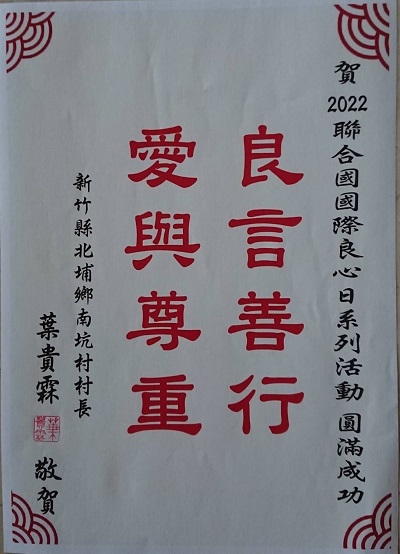 賀2022聯合國國際良心日系列活動 圓滿成功
良言善行
愛與尊重
新竹縣北埔鄉南坑村村長
葉貴霖 敬賀